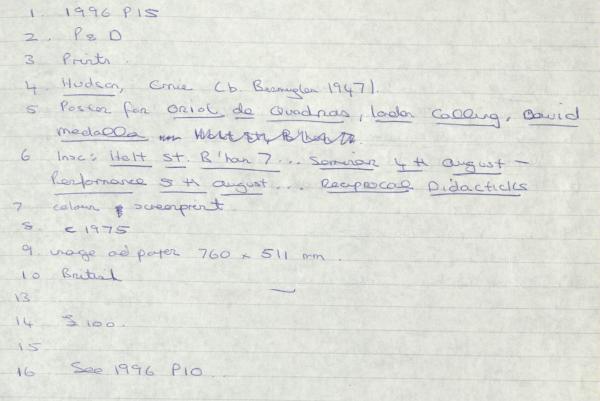 1. 1996 P15
2. P & D
3 Prints
4. Hudson, Ernie (b. Bermuda 1947).
5 Poster for Oriol de Quadras, Iador Calling, David
medalla
6 Insc: Holt St. B'ham 7 ... Seminar 4th august -
Performance 5th august ... Reciprocal Didacticks
7 colour screenprint
8. c 1975
9. image and paper 760 x 511 mm.
10 British
13
14 £100.
15
16 See 1996 P10